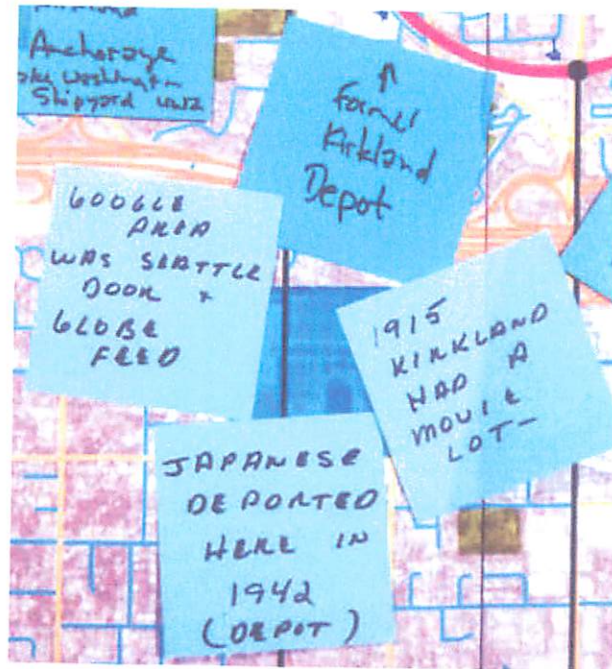 Anchorage
Shipyard WW2
↑
Former
Kirkland
Depot
GOOGLE
AREA
WAS SEATTLE
DOOR +
GLOBE
FEED
1915
KIRKLAND
HAD A
MOVIE
LOT-
JAPANESE
DEPORTED
HERE IN
1942
(DEPOT)